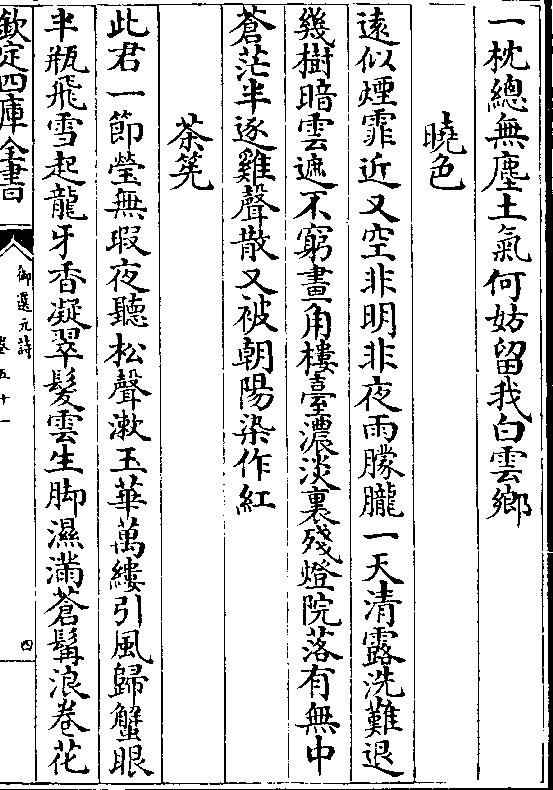 一枕總無塵土氣何妨留我白雲鄉
曉色
遠似煙霏近又空非明非夜雨朦朧一天清露洗難退
幾樹暗雲遮不窮畫角樓臺濃淡裏殘燈院落有無中
蒼茫半逐雞聲散又被朝陽染作紅
茶筅
此君一節瑩無瑕夜聽松聲漱玉華萬縷引風歸蟹眼
半瓶飛雪起龍牙香凝翠髮雲生脚濕滿蒼髯浪卷花
欽定四庫全書
御選元詩
卷五十一
四